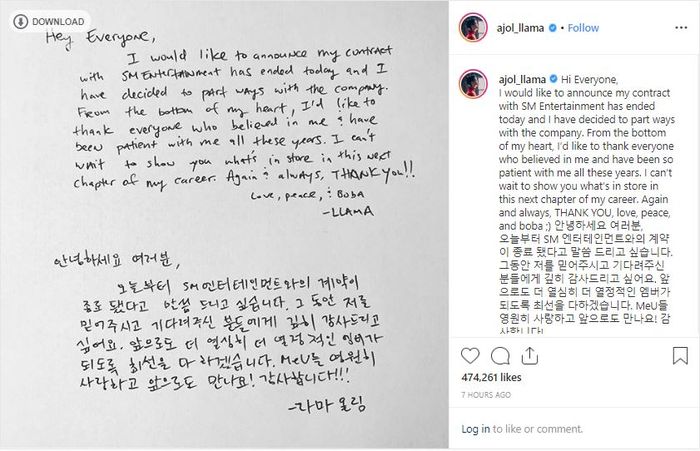 DOWNLOAD
Hey Everyone,
I would like to announce my contract
with SM Entertainment has ended today and I
have decided to part ways with the company.
From the bottom of my heart, I'd like to
thank everyone who believed in me & have
been patient with me all these years. I can't
wait to show you what's in store in this next
chapter of my career. Again & always, THANK YOU!!
Love, peace, & Boba
-LLAMA
안녕하세요 여러분,
오늘부터 SM엔터테인먼트와의 계약이
종료 됐다고 말씀 드리고 싶습니다. 그동안 저를
믿어주시고 기다려주신 분들에게 깊히 감사드리고
싶어요. 앞으로도 더 열심히 더 열정적인 엠버가
되도록 최선을 다 하겠습니다. MeU들 영원히
사랑하고 앞으로도 만나요! 감사합니다!!!
-라마 올림
ajol_llama • Follow
ajol_llama Hi Everyone,
I would like to announce my contract
with SM Entertainment has ended
today and I have decided to part ways
with the company. From the bottom
of my heart, I'd like to thank everyone
who believed in me and have been so
patient with me all these years. I can't
wait to show you what's in store in
this next chapter of my career. Again
and always, THANK YOU, love, peace,
and boba ;) 안녕하세요 여러분,
오늘부터 SM 엔터테인먼트와의 계약
이 종료 됐다고 말씀 드리고 싶습니다.
그동안 저를 믿어주시고 기다려주신
분들에게 깊히 감사드리고 싶어요. 앞
으로도 더 열심히 더 열정적인 엠버가
되도록 최선을 다하겠습니다. MeU를
영원히 사랑하고 앞으로도 만나요! 감
사합니다!
474,261 likes
7 HOURS AGO
Log in to like or comment.